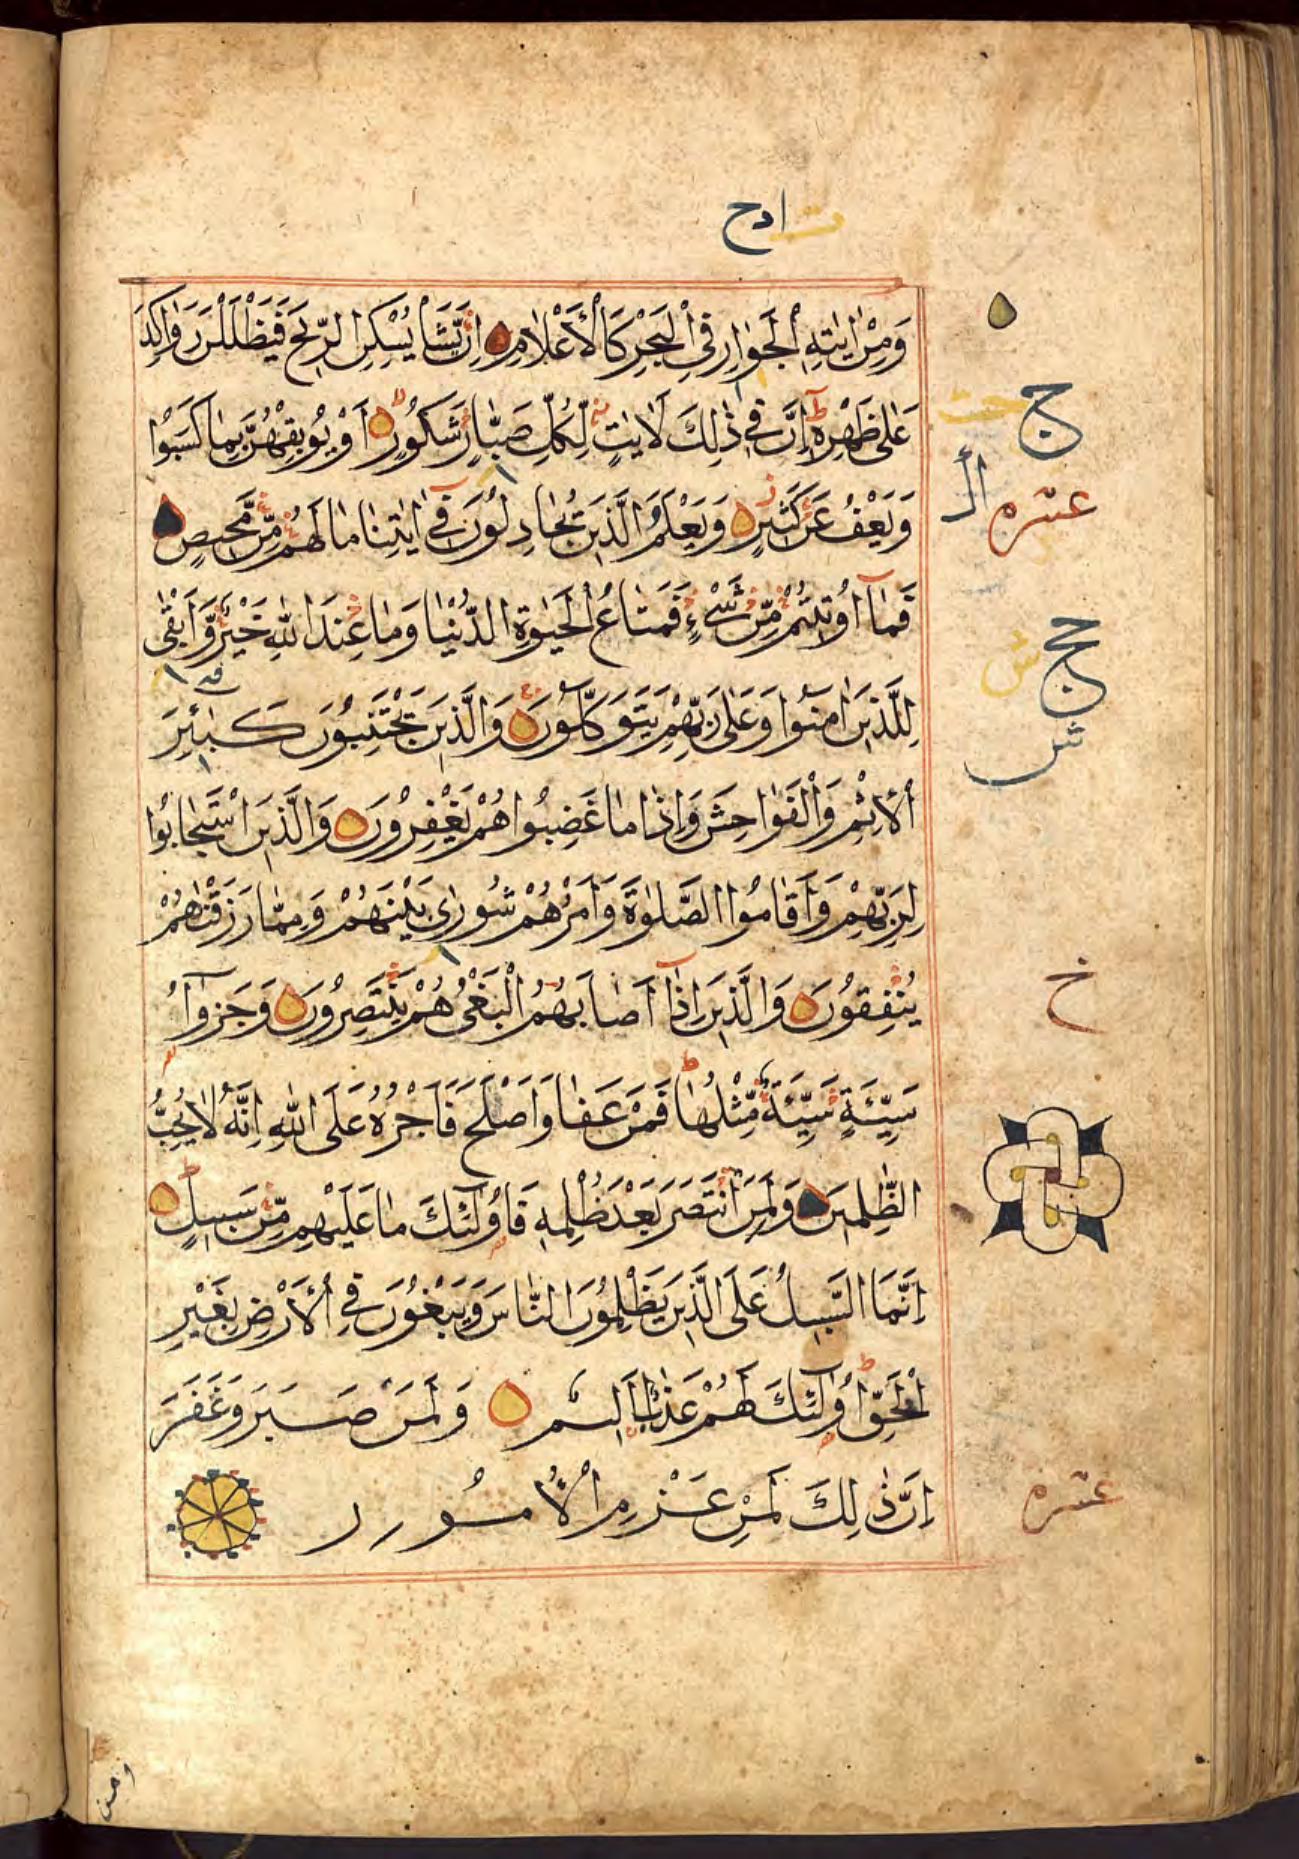 ادح
وَمِنْ اٰيٰتِهِ الْجَوَارِ فِى الْبَحْرِ كَالْاَعْلَامِ اِنْ يَّشَأْ يُسْكِنِ الرِّيْحَ فَيَظْلَلْنَ رَوَاكِدَ
عَلٰى ظَهْرِهٖ اِنَّ فِىْ ذٰلِكَ لَاٰيٰتٍ لِّكُلِّ صَبَّارٍ شَكُوْرٍ اَوْ يُوْبِقْهُنَّ بِمَا كَسَبُوْا
وَيَعْفُ عَنْ كَثِيْرٍ وَيَعْلَمَ الَّذِيْنَ يُجَادِلُوْنَ فِىْ اٰيٰتِنَا مَا لَهُمْ مِّنْ مَّحِيْصٍ
فَمَا اُوْتِيْتُمْ مِّنْ شَىْءٍ فَمَتَاعُ الْحَيٰوةِ الدُّنْيَا وَمَا عِنْدَ اللّٰهِ خَيْرٌ وَّاَبْقٰى
لِلَّذِيْنَ اٰمَنُوْا وَعَلٰى رَبِّهِمْ يَتَوَكَّلُوْنَ وَالَّذِيْنَ يَجْتَنِبُوْنَ كَبٰئِرَ
الْاِثْمِ وَالْفَوَاحِشَ وَاِذَا مَا غَضِبُوْا هُمْ يَغْفِرُوْنَ وَالَّذِيْنَ اسْتَجَابُوْا
لِرَبِّهِمْ وَاَقَامُوا الصَّلٰوةَ وَاَمْرُهُمْ شُوْرٰى بَيْنَهُمْ وَمِمَّا رَزَقْنٰهُمْ
يُنْفِقُوْنَ وَالَّذِيْنَ اِذَا اَصَابَهُمُ الْبَغْىُ هُمْ يَنْتَصِرُوْنَ وَجَزٰؤُا
سَيِّئَةٍ سَيِّئَةٌ مِّثْلُهَا فَمَنْ عَفَا وَاَصْلَحَ فَاَجْرُهٗ عَلَى اللّٰهِ اِنَّهٗ لَا يُحِبُّ
الظّٰلِمِيْنَ وَلَمَنِ انْتَصَرَ بَعْدَ ظُلْمِهٖ فَاُولٰئِكَ مَا عَلَيْهِمْ مِّنْ سَبِيْلٍ
اِنَّمَا السَّبِيْلُ عَلَى الَّذِيْنَ يَظْلِمُوْنَ النَّاسَ وَيَبْغُوْنَ فِى الْاَرْضِ بِغَيْرِ
الْحَقِّ اُولٰئِكَ لَهُمْ عَذَابٌ اَلِيْمٌ وَلَمَنْ صَبَرَ وَغَفَرَ
اِنَّ ذٰلِكَ لَمِنْ عَزْمِ الْاُمُوْرِ
ج
عشره
حج
ش
خ
عشره